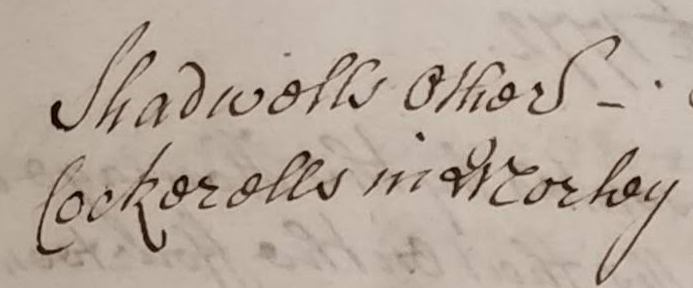 Shadwells Others - .
Cockerells in Morley